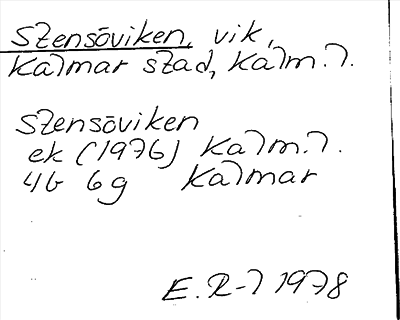 Stensöviken, vik,
Kalmar stad, Kalm. l.
Stensöviken
ek (1976) Kalm. l.
4G 6g Kalmar
E. R-l 1978